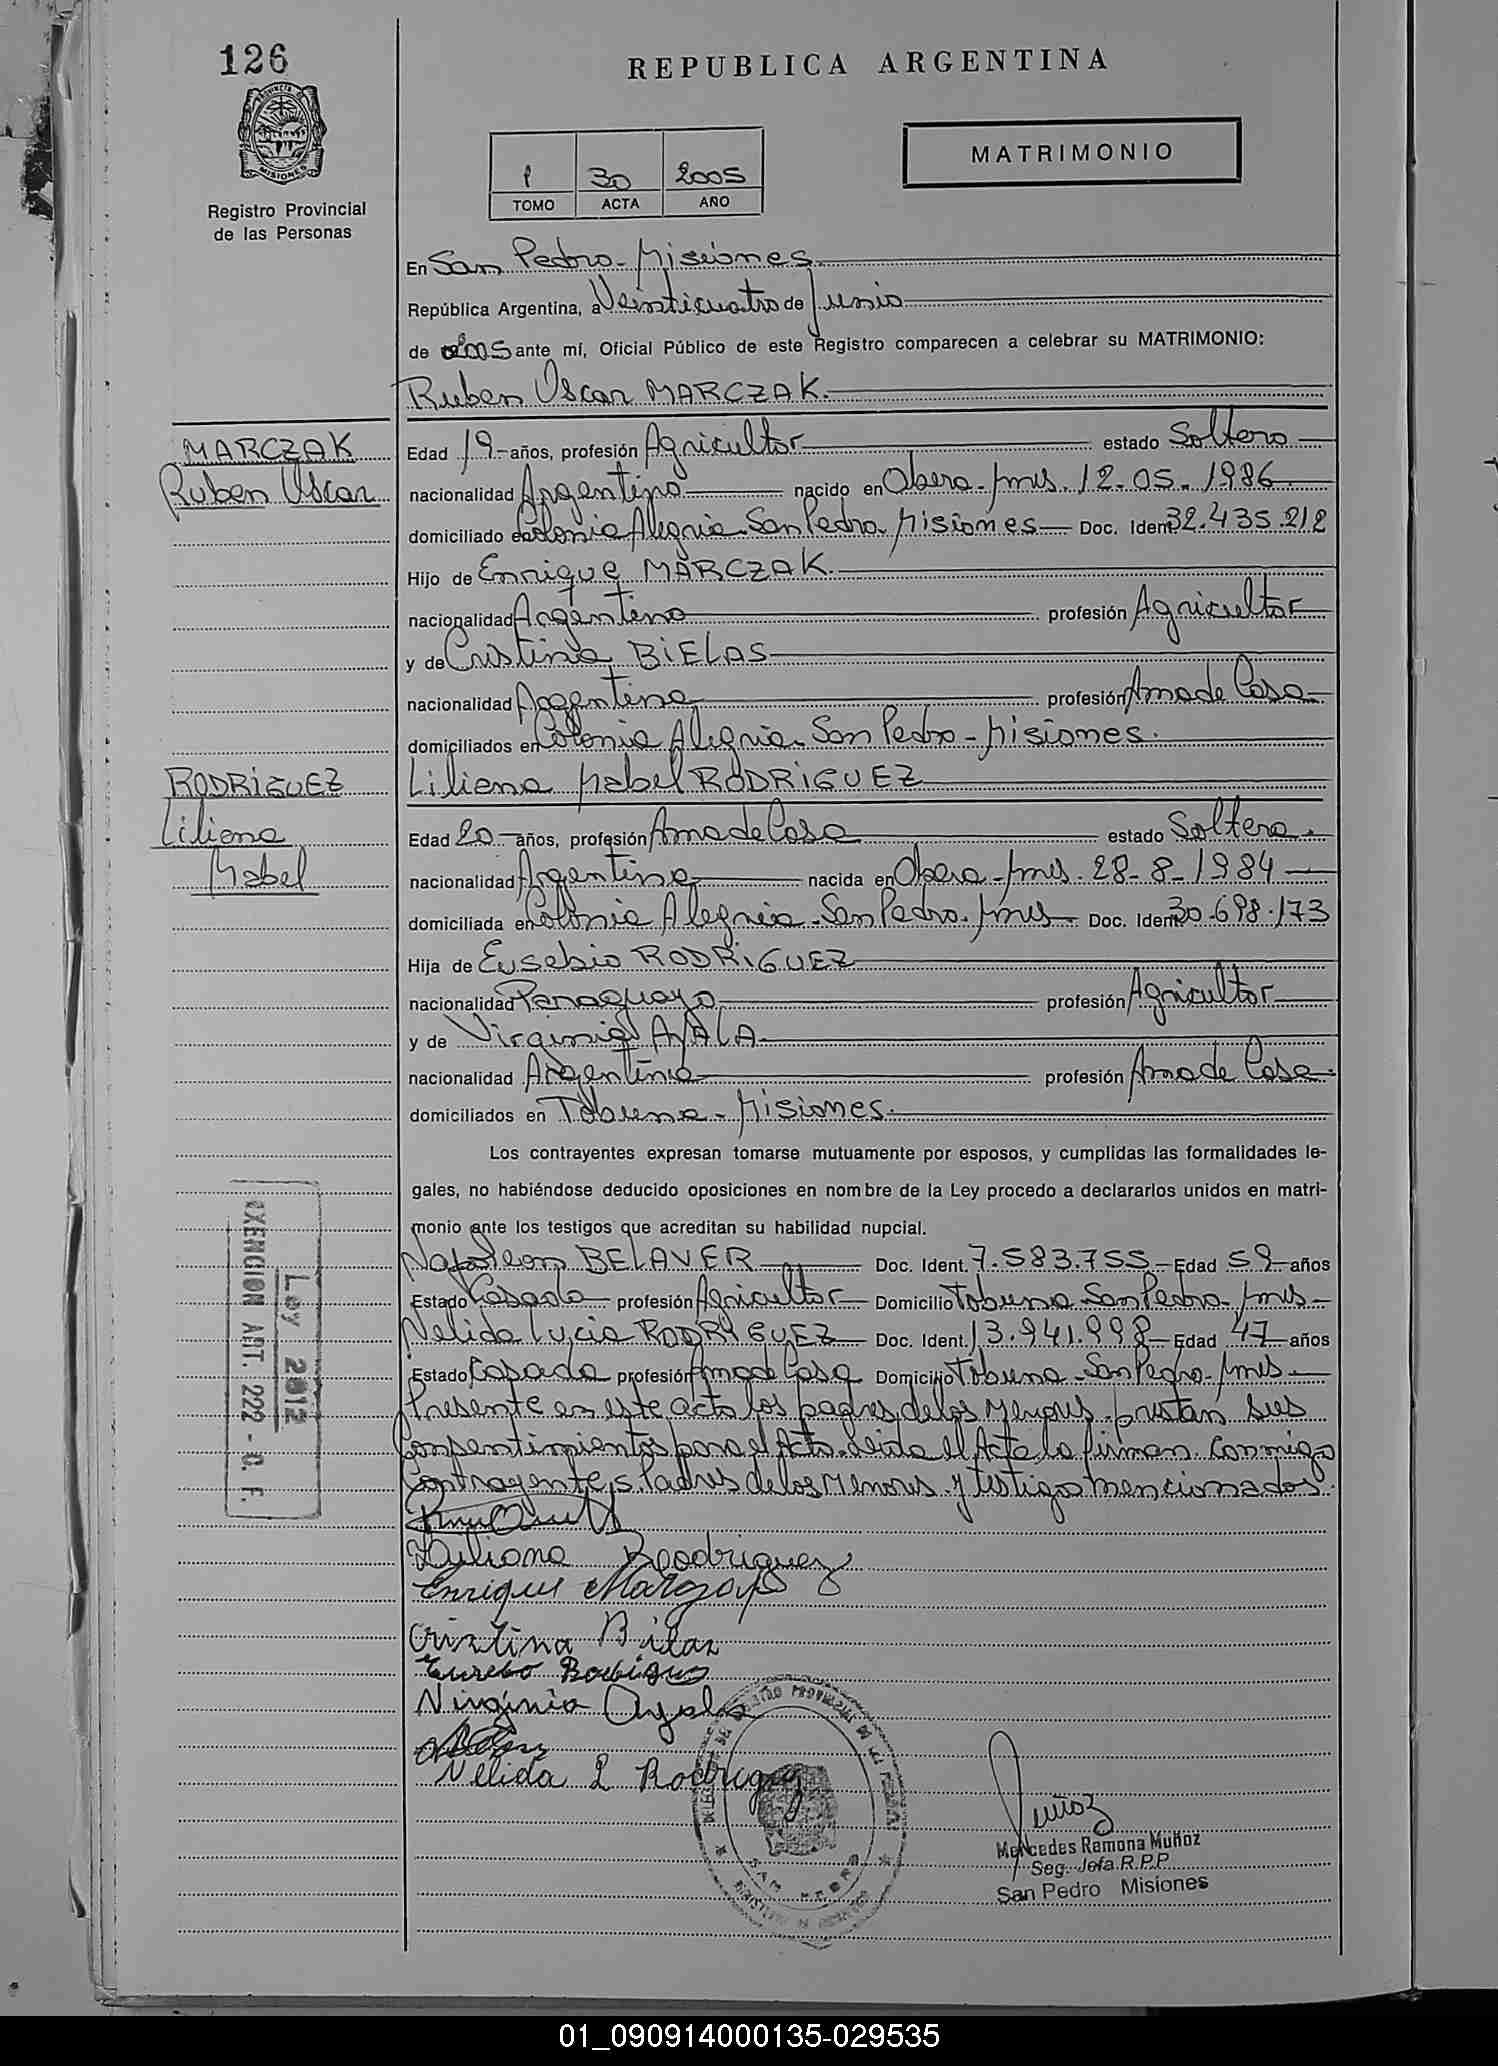 126
REPUBLICA ARGENTINA
PROVINCIA DE
MISIONES
Registro Provincial
de las Personas
1 30 2005
TOMO ACTA AÑO
MATRIMONIO
En San Pedro - Misiones
República Argentina, a Veinticuatro de Junio
de 2005 ante mí, Oficial Público de este Registro comparecen a celebrar su MATRIMONIO:
Ruben Oscar MARCZAK.
MARCZAK
Ruben Oscar
Edad 19 años, profesión Agricultor estado Soltero
nacionalidad Argentino nacido en Obera - Mnes. 12-05-1986
domiciliado en Colonia Alegria - San Pedro Misiones Doc. Ident. 32.435.212
Hijo de Enrique MARCZAK.
nacionalidad Argentino profesión Agricultor
y de Cristina BIELAS
nacionalidad Argentina profesión Ama de Casa
domiciliados en Colonia Alegria - San Pedro - Misiones.
RODRIGUEZ
Liliana
Mabel
Liliana Mabel RODRIGUEZ
Edad 20 años, profesión Ama de Casa estado Soltera.
nacionalidad Argentina nacida en Obera - Mnes. 28-8-1984
domiciliada en Colonia Alegria - San Pedro - Mnes Doc. Ident. 30.698.173
Hija de Eusebio RODRIGUEZ
nacionalidad Paraguayo profesión Agricultor
y de Virginia AYALA
nacionalidad Argentina profesión Ama de Casa
domiciliados en Tobuna - Misiones.
Los contrayentes expresan tomarse mutuamente por esposos, y cumplidas las formalidades le-
gales, no habiéndose deducido oposiciones en nombre de la Ley procedo a declararlos unidos en matri-
monio ante los testigos que acreditan su habilidad nupcial.
Napoleon BELAVER Doc. Ident. 7.583.755 Edad 59 años
Estado Casado profesión Agricultor Domicilio Tobuna San Pedro - Mnes
Nelida Lucia RODRIGUEZ Doc. Ident. 13.941.998 Edad 47 años
Estado Casada profesión Ama de Casa Domicilio Tobuna - San Pedro - Mnes
Presente en este acto los padres de los Menores prestan sus
Consentimientos para el Acto. Leida el Acta la firman Conmigo
Contrayentes, Padres de los Menores y testigos mencionados.
Ley 2812
EXENCION ART. 222 - C. F.
Lyliana Roodriguez
Enrique Marczak
Cristina Bilas
Eusebo Rodrigues
Virginia Ayala
Nelida L Rodriguez
SAN PEDRO
Muñoz
Mercedes Ramona Muñoz
Seg. Jefa R.P.P.
San Pedro Misiones
01_090914000135-029535